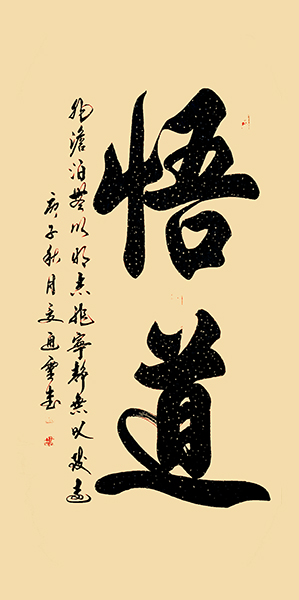 悟道
非澹泊無以明志非寧靜無以致遠
庚子秋月